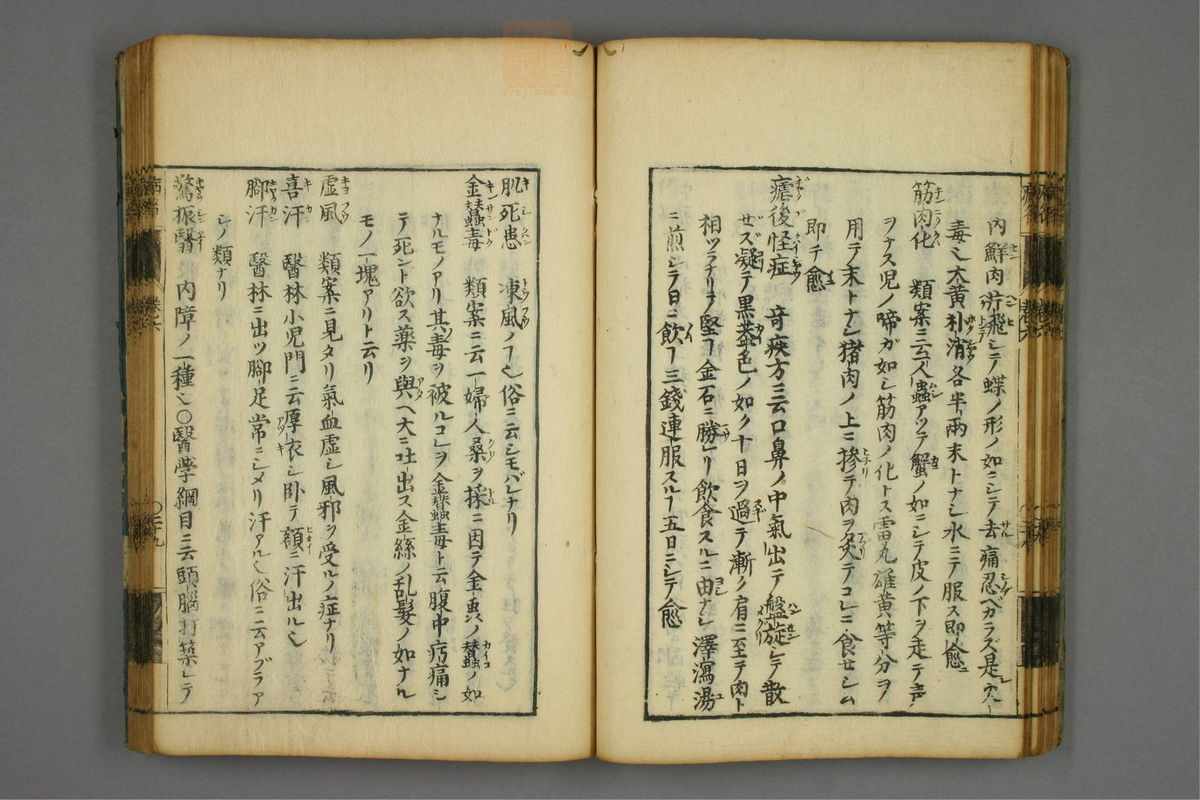 内鮮肉滸飛シテ蝶ノ形ノ如ニシテ去痛忍ベカラズ是火
毒也大黄朴消各半両末トナシ水ニテ服ス即愈
筋肉化　類案ニ云人蟲アツテ蟹ノ如ニシテ皮ノ下ヲ走テ声
ヲナス児ノ啼ガ如シ筋肉ノ化トス雷丸雄黄等分ヲ
用テ末トナシ猪肉ノ上ニ掺テ肉ヲ炙テコレニ食セシム
即チ愈
瘧後怪症　奇疾方ニ云口鼻ノ中氣出テ盤旋シテ散
セズ凝テ黒葢色ノ如ク十日ヲ過テ漸ク肩ニ至テ肉ト
相ツラナリテ堅ヿ金石ニ勝レリ飲食スルニ由ナシ澤瀉湯
ニ煎シテ日ニ飲ヿ三錢連服スルヿ五日ニシテ愈
肌死患　凍風ノヿ也俗ニ云シモバレナリ
金蠶毒　類案ニ云一婦人桑ヲ採ニ因テ金虫ノ蠶ノ如
ナルモノアリ其毒ヲ被ルコレヲ金蠶蟲毒ト云腹中㽲痛シ
テ死ント欲ス薬ヲ與ヘ大ニ吐出ス金絲ノ乱髪ノ如ナル
モノ一塊アリト云リ
虚風　類案ニ見タリ氣血虚シ風邪ヲ受ルノ症ナリ
喜汗　醫林小児門ニ云厚衣シ卧テ額ニ汗出ル也
脚汗　醫林ニ出ツ脚足常ニシメリ汗アル也俗ニ云アブラア
シノ類ナリ
驚振醫　内障ノ一種也〇醫學綱目ニ云頭脳打築シテ
巻六
〇二十九